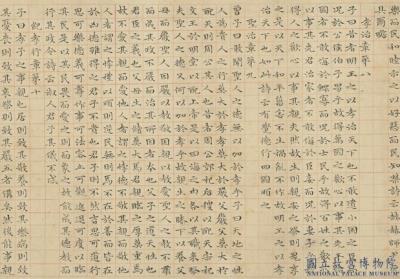 樂而民和睦示之以好惡而民知禁詩云赫赫師
具爾瞻
孝治章第八
子曰昔者明王之以孝治天下也不敢遺小國之
況於公侯伯子男乎故得萬國之歡心以事其先王
治國者不敢侮於鰥寡而況於士民乎故得百姓
之歡心以事其先君治家者不敢失於臣妾而況於妻
得人之歡心以事其親夫然故生則親安之祭則鬼享
之是以天下和平災害不生禍亂不作故明王之以孝
治天下也如此詩云有覺德行四國順之
聖治章第九
曾子曰敢問聖人之德無以加於孝乎子曰天地之性
人為貴人之行莫大於孝孝莫大於嚴父嚴父莫大於
配天則周公其人也昔者周公郊祀后稷以配天宗祀
文王於明堂以配上帝是以四海之內各以其職來祭
夫聖人之德又何以加於孝乎故親生之膝下以養父
母日嚴聖人因嚴以教敬因親以教愛聖人之教不肅
而成其政不嚴而治其所因者本也父子之道天性也
君臣之義也父母生之續莫大焉君親臨之厚莫重焉
故不愛其親而愛他人者謂之悖德不敬其親而敬他
人者謂之悖禮以順則逆民無則焉不在於善而皆在
於凶德雖得之君子不貴也君子則不然言思可道行
思可樂德義可尊作事可法容止可觀進退可度以臨
其民是以其民畏而愛之則而象之故能成其德教而
行其政令詩云淑人君子其儀不忒
紀孝行章第十
子曰孝子之事親也居則致其敬養則致其樂病則致
其憂喪則致其哀祭則致其嚴五者備矣然後能事親
國立故宮博物院
NATIONAL PALACE MUSEUM